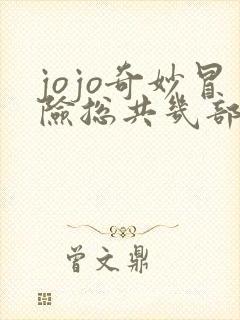 jojo奇妙冒
险总共几部
曾文鼎